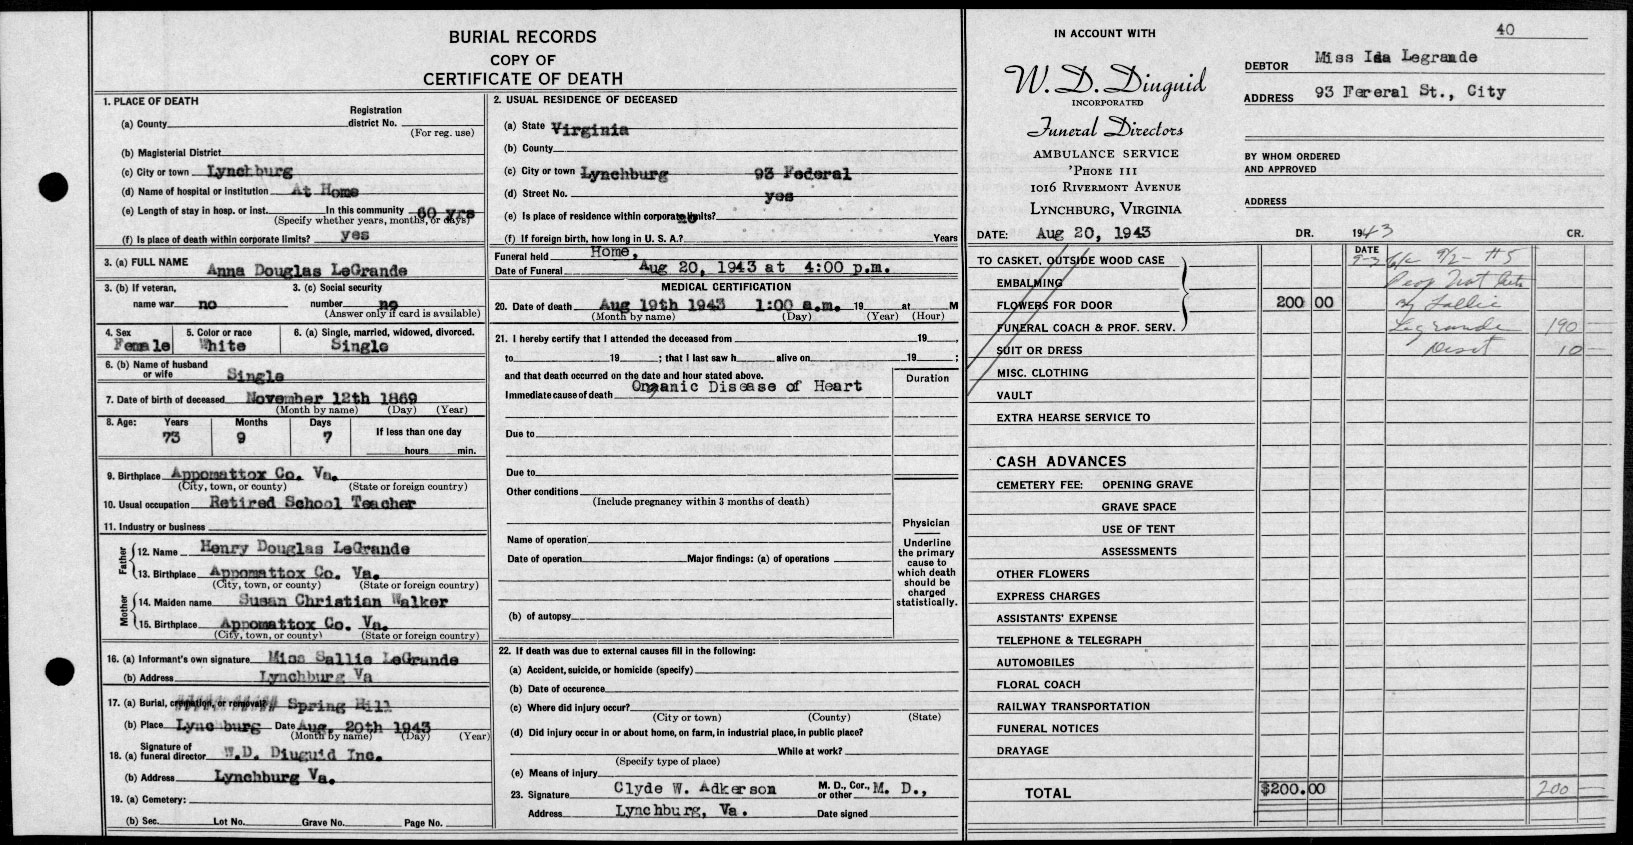 BURIAL RECORDS
COPY OF
CERTIFICATE OF DEATH
1. PLACE OF DEATH
Registration
(a) County district No.
(For reg. use)
(b) Magisterial District
(c) City or town Lynchburg
(d) Name of hospital or institution At Home
(e) Length of stay in hosp. or inst. In this community 60 yrs
(Specify whether years, months, or days)
(f) Is place of death within corporate limits? yes
3. (a) FULL NAME Anna Douglas LeGrande
3. (b) If veteran, 3. (c) Social security
name war no number no
(Answer only if card is available)
4. Sex 5. Color or race 6. (a) Single, married, widowed, divorced.
Female White Single
6. (b) Name of husband
or wife Single
7. Date of birth of deceased November 12th 1869
(Month by name) (Day) (Year)
8. Age: Years Months Days If less than one day
73 9 7
hours min.
9. Birthplace Appomattox Co. Va.
(City, town, or county) (State or foreign country)
10. Usual occupation Retired School Teacher
11. Industry or business
Father
12. Name Henry Douglas LeGrande
13. Birthplace Appomattox Co. Va.
(City, town, or county) (State or foreign country)
Mother
14. Maiden name Susan Christian Walker
15. Birthplace Appomattox Co. Va.
(City, town, or county) (State or foreign country)
16. (a) Informant's own signature Miss Sallie LeGrande
(b) Address Lynchburg Va
17. (a) Burial, cremation, or removal? Spring Hill
(b) Place Lynchburg Date Aug. 20th 1943
(Month by name) (Day) (Year)
Signature of
18. (a) funeral director W.D. Diuguid Inc.
(b) Address Lynchburg Va.
19. (a) Cemetery:
(b) Sec. Lot No. Grave No. Page No.
2. USUAL RESIDENCE OF DECEASED
(a) State Virginia
(b) County
(c) City or town Lynchburg 93 Federal
(d) Street No. yes
(e) Is place of residence within corporate limits? no
(f) If foreign birth, how long in U. S. A.? Years
Funeral held Home,
Date of Funeral Aug 20, 1943 at 4:00 p.m.
MEDICAL CERTIFICATION
20. Date of death Aug 19th 1943 1:00 a.m. 19 at M
(Month by name) (Day) (Year) (Hour)
21. I hereby certify that I attended the deceased from 19 ,
to 19 ; that I last saw h alive on 19 ;
and that death occurred on the date and hour stated above.
Duration
Immediate cause of death Organic Disease of Heart
Due to
Due to
Other conditions
(Include pregnancy within 3 months of death)
Name of operation
Date of operation Major findings: (a) of operations
(b) of autopsy
Physician
Underline
the primary
cause to
which death
should be
charged
statistically.
22. If death was due to external causes fill in the following:
(a) Accident, suicide, or homicide (specify)
(b) Date of occurence
(c) Where did injury occur?
(City or town) (County) (State)
(d) Did injury occur in or about home, on farm, in industrial place, in public place?
While at work?
(Specify type of place)
(e) Means of injury
23. Signature Clyde W. Adkerson M. D., Cor., or other M. D.,
Address Lynchburg, Va. Date signed
IN ACCOUNT WITH
W. D. Diuguid
INCORPORATED
Funeral Directors
AMBULANCE SERVICE
'PHONE 111
1016 RIVERMONT AVENUE
LYNCHBURG, VIRGINIA
40
DEBTOR Miss Ida Legrande
ADDRESS 93 Fereral St., City
BY WHOM ORDERED
AND APPROVED
ADDRESS
DATE: Aug 20, 1943 DR. 1943 CR.
TO CASKET, OUTSIDE WOOD CASE
EMBALMING
FLOWERS FOR DOOR 200 00
FUNERAL COACH & PROF. SERV.
SUIT OR DRESS
MISC. CLOTHING
VAULT
EXTRA HEARSE SERVICE TO
DATE
9-3 9/2- #5
Sallie
Legrande 190 —
10 —
CASH ADVANCES
CEMETERY FEE: OPENING GRAVE
GRAVE SPACE
USE OF TENT
ASSESSMENTS
OTHER FLOWERS
EXPRESS CHARGES
ASSISTANTS' EXPENSE
TELEPHONE & TELEGRAPH
AUTOMOBILES
FLORAL COACH
RAILWAY TRANSPORTATION
FUNERAL NOTICES
DRAYAGE
TOTAL $200.00 200 —